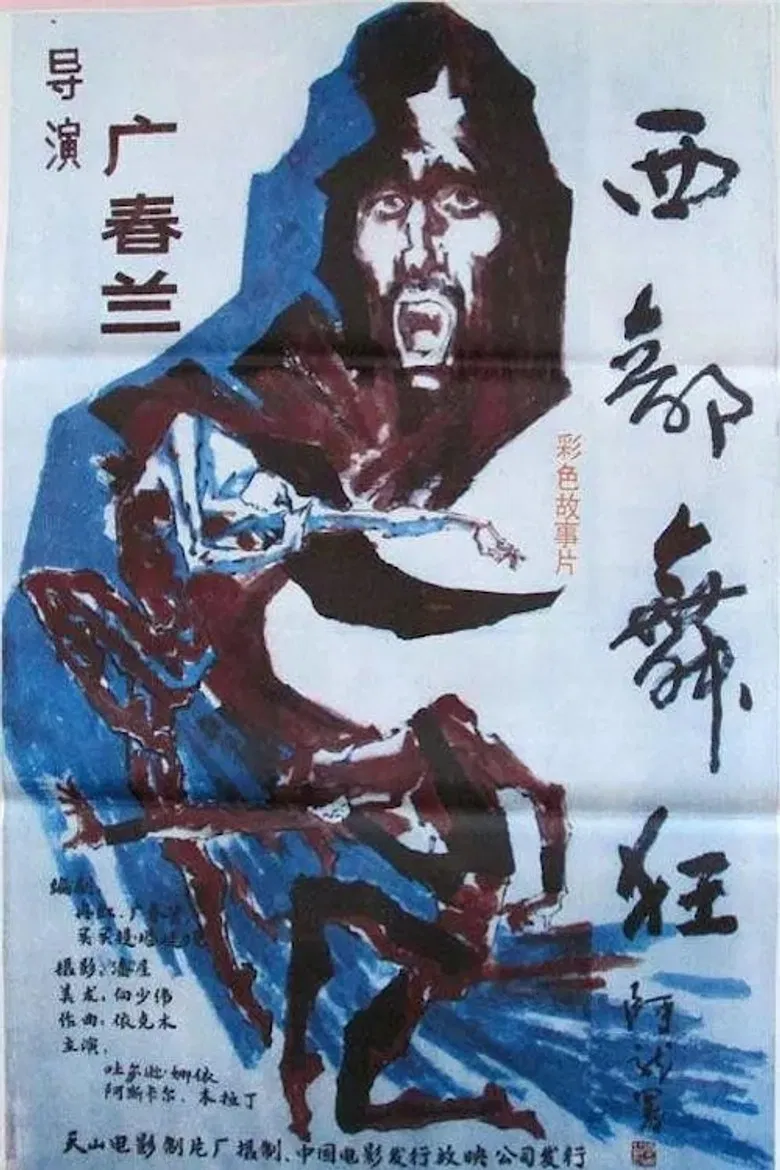 导演
广春兰
西部舞狂
彩色故事片
编剧:
广春兰
摄影:
美术:向少伟
作曲:依克木
主演:
吐尔逊娜依
阿斯卡尔、木拉丁
天山电影制片厂摄制、中国电影发行放映公司发行